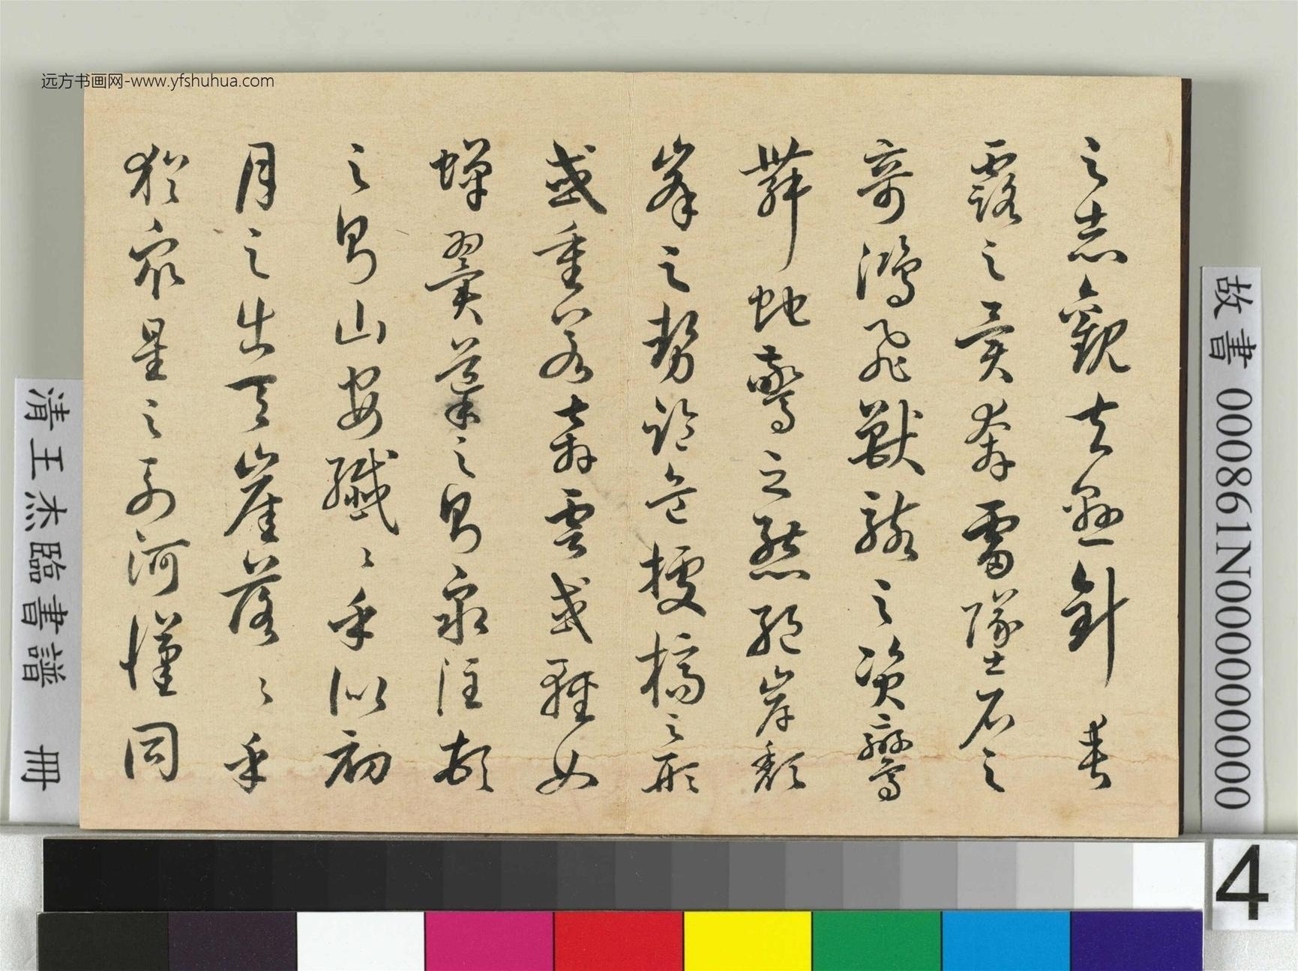 远方书画网-www.yfshuhua.com
之志觀夫懸針垂
露之異奔雷墜石之
奇鴻飛獸駭之資鸞
舞蛇驚之態絕岸頹
峯之勢臨危據槁之形
或重若奔雲或輕如
蟬翼導之則泉注頓
之則山安纖〻乎似初
月之出天崖落〻乎
猶眾星之列河漢同
故書 000861N000000000
清王杰臨書譜 冊
4